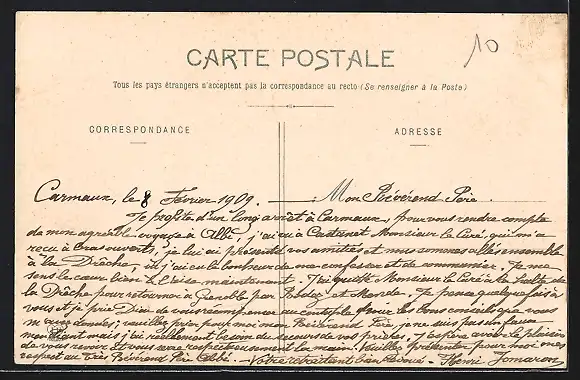 10
CARTE POSTALE
Tous les pays étrangers n'acceptent pas la correspondance au recto (Se renseigner à la Poste)
CORRESPONDANCE
ADRESSE
Carmaux, le 8 Février 1909. Mon Révérend Père
Je profite d'un long arrêt à Carmaux, pour vous rendre compte
de mon agréable voyage à Albi, j'ai vu à Castanet Monsieur le Curé, qui m'a
reçu à bras ouverts, je lui ai présenté vos amitiés et nous sommes allés ensemble
à la Drèche, où j'ai eu le bonheur de me confesser et de communier. Je me
sens le cœur bien à l'aise maintenant. J'ai quitté Monsieur le Curé à la
la Drèche pour retourner à par Rodez et Mende. Je pense quelquefois à
vous et je prie Dieu de vous récompenser au centuple pour les bons conseils que vous
m'avez donnés; veuillez prier pour moi mon Révérend Père, je ne suis pas un
mais j'ai réellement besoin du secours de vos prières. J'espère avoir le plaisir
de vous revoir et vous serre respectueusement la main. Veuillez présenter pour moi mes
respect au Très Révérend Père Abbé. - Votre retraitant bien dévoué - Henri